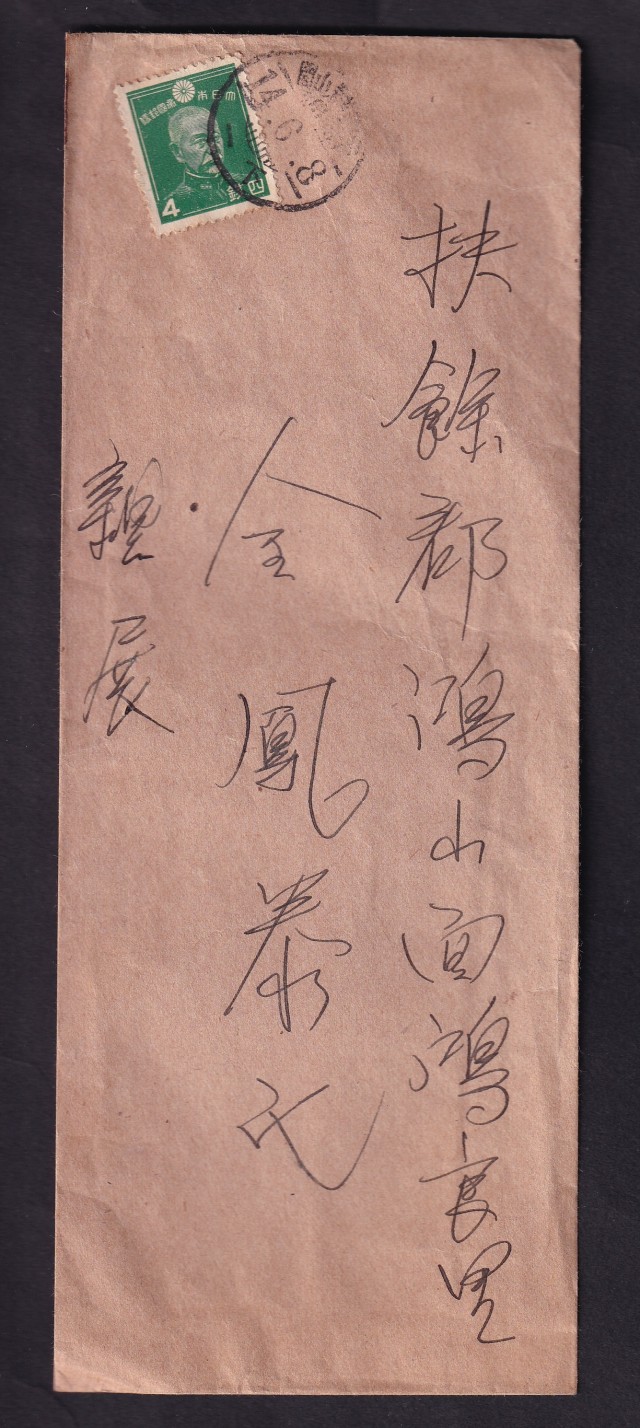 扶餘郡鴻山面鴻良里
金鳳泰氏
親展
大日本帝國郵便
4
四
14.6.8